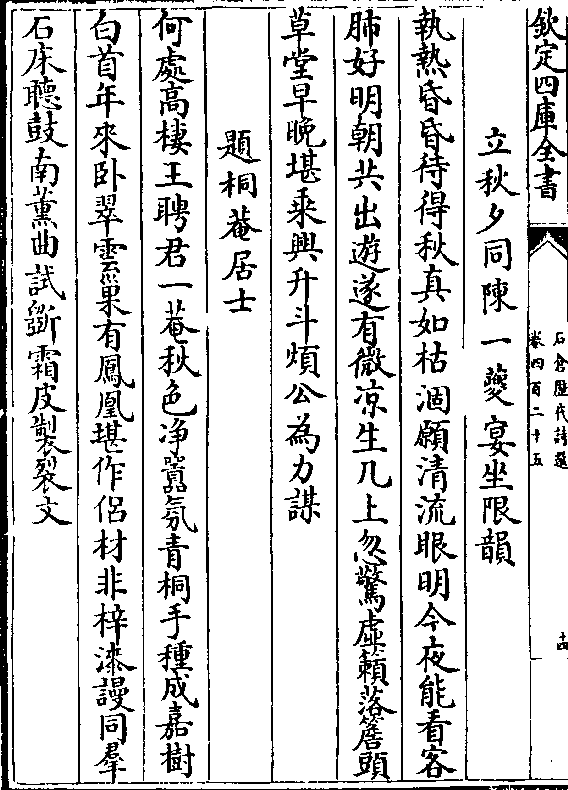 欽定四庫全書
石倉歷代詩選
卷四百二十五
十四
立秋夕同陳一夔宴坐限韻
執熱昏昏待得秋真如枯涸願清流眼明今夜能看客
肺好明朝共出遊遂有微凉生几上忽驚虛籟落簷頭
草堂早晚堪乘興升斗煩公為力謀
題桐菴居士
何處高棲王聘君一菴秋色净囂氛青桐手種成嘉樹
白首年來卧翠雲巢有鳳凰堪作侶材非梓漆謾同羣
石床聽鼓南薰曲試斵霜皮製裂文